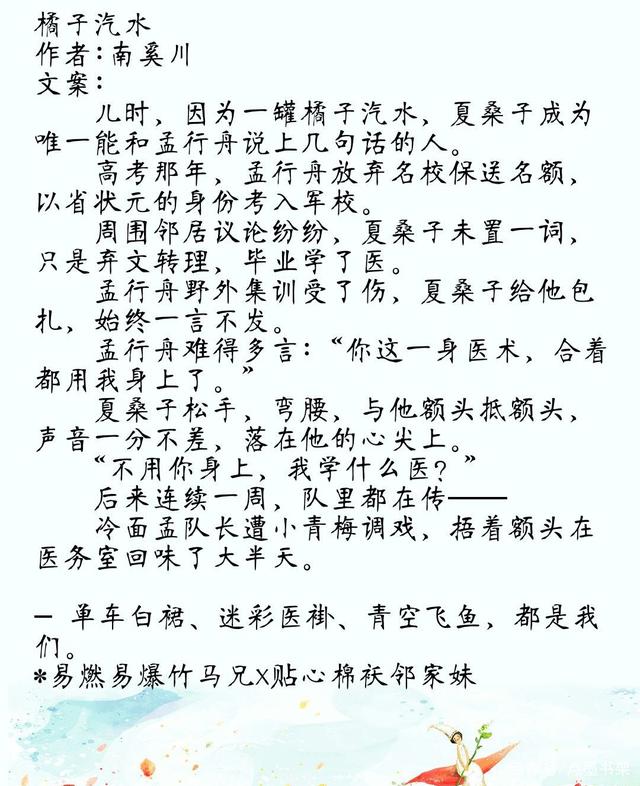 橘子汽水
作者：南奚川
文案：
儿时，因为一罐橘子汽水，夏桑子成为
唯一能和孟行舟说上几句话的人。
高考那年，孟行舟放弃名校保送名额，
以省状元的身份考入军校。
周围邻居议论纷纷，夏桑子未置一词，
只是弃文转理，毕业学了医。
孟行舟野外集训受了伤，夏桑子给他包
扎，始终一言不发。
孟行舟难得多言：“你这一身医术，合着
都用我身上了。”
夏桑子松手，弯腰，与他额头抵额头，
声音一分不差，落在他的心尖上。
“不用你身上，我学什么医？”
后来连续一周，队里都在传——
冷面孟队长遭小青梅调戏，捂着额头在
医务室回味了大半天。
— 单车白裙、迷彩医褂、青空飞鱼，都是我
们。
*易燃易爆竹马兄X贴心棉袄邻家妹